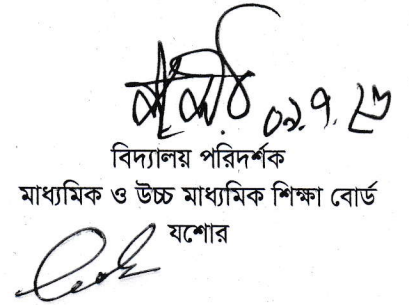 ০৯.৭.২৩
বিদ্যালয় পরিদর্শক
মাধ্যমিক ও উচ্চ মাধ্যমিক শিক্ষা বোর্ড
যশোর